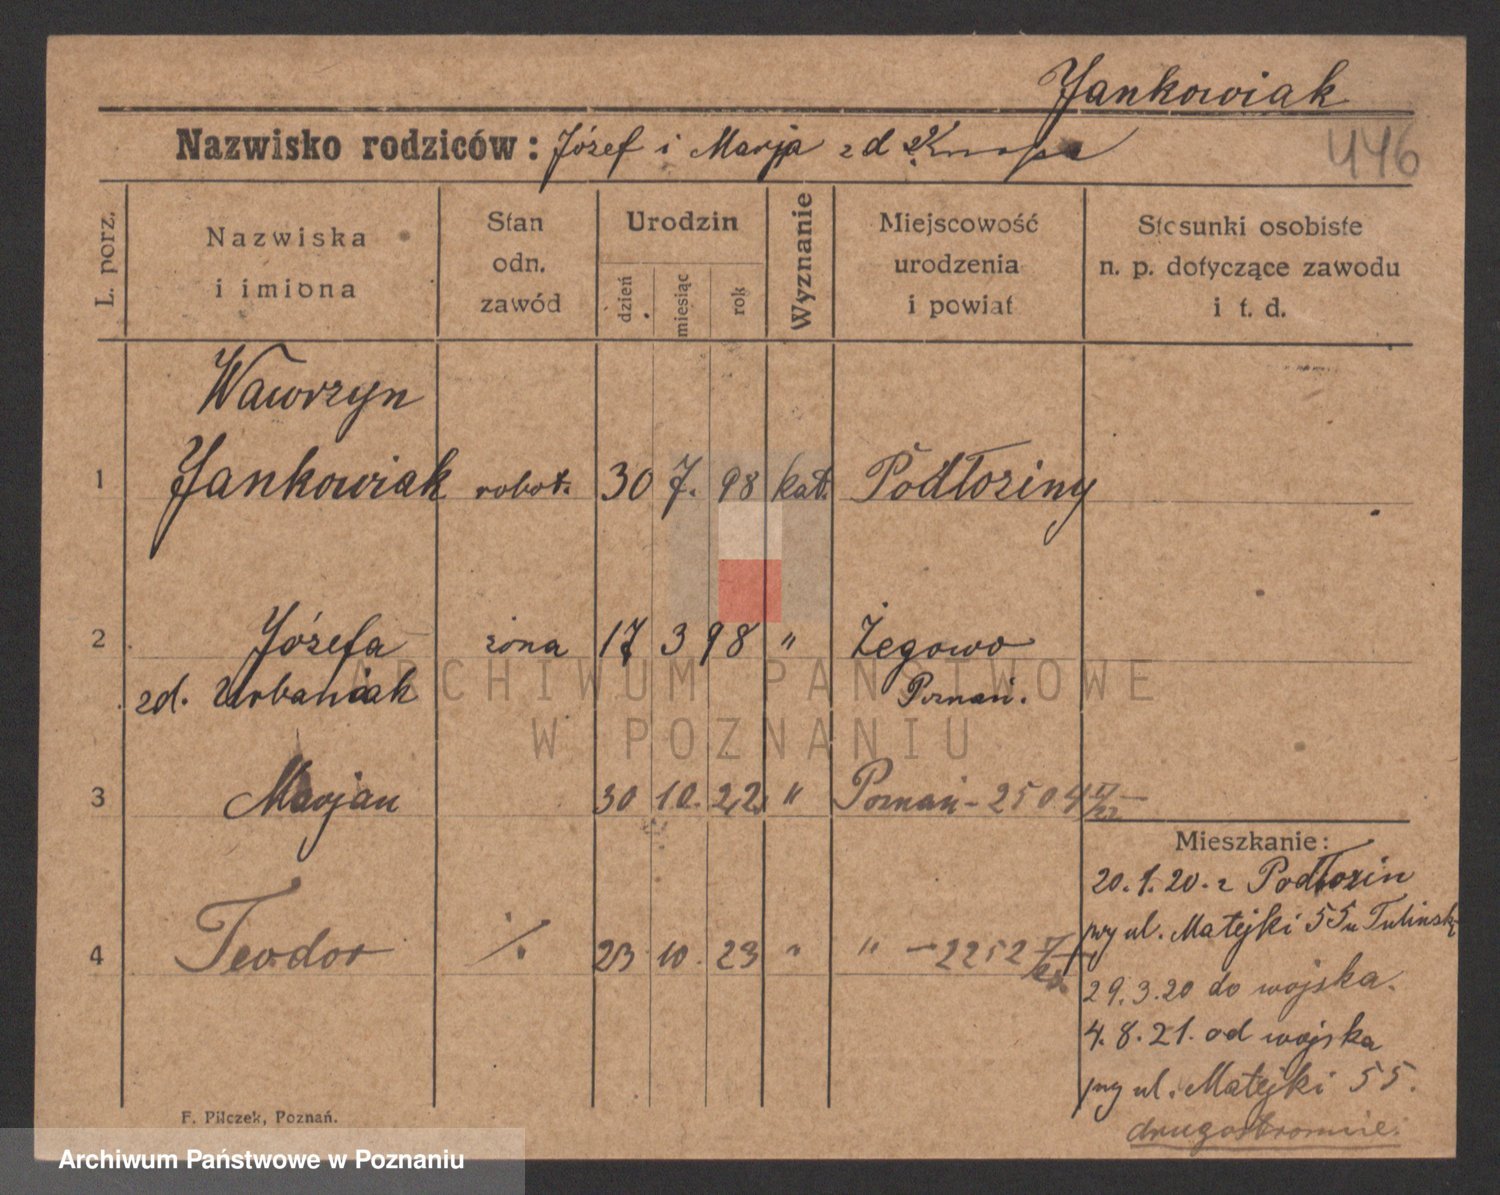 Jankowiak
Nazwisko rodziców: Józef i Marja zd
446
L. porz.
Nazwiska i imiona
Stan odn. zawód
Urodzin
dzień
miesiąc
rok
Wyznanie
Miejscowość urodzenia i powiat
Stosunki osobiste n. p. dotyczące zawodu i t. d.
Wawrzyn
1 Jankowiak robot. 30 7. 98 kat. Podłoziny
2 Józefa żona 17 3 98 " Żegowo
zd. Urbaniak Poznań.
ARCHIWUM PAŃSTWOWE
W POZNANIU
3 Marjan 30 10. 22 " Poznań - 2504
Mieszkanie:
20.1.20. z Podłozin
przy ul. Matejki 55 u Tulinsk
4 Teodor ./. 23 10. 23 " " - 2252
29.3.20 do wojska.
4.8.21. od wojska
przy ul. Matejki 55.
drugostronnie.
F. Pilczek, Poznań.
Archiwum Państwowe w Poznaniu